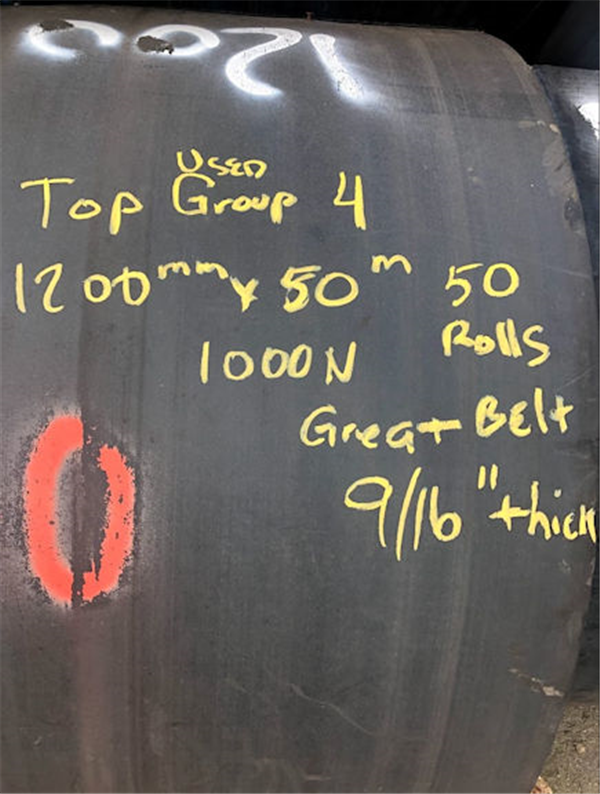 Used
Top Group 4
1200mm x 50m 50
Rolls
1000N
Great Belt
9/16" thick
0